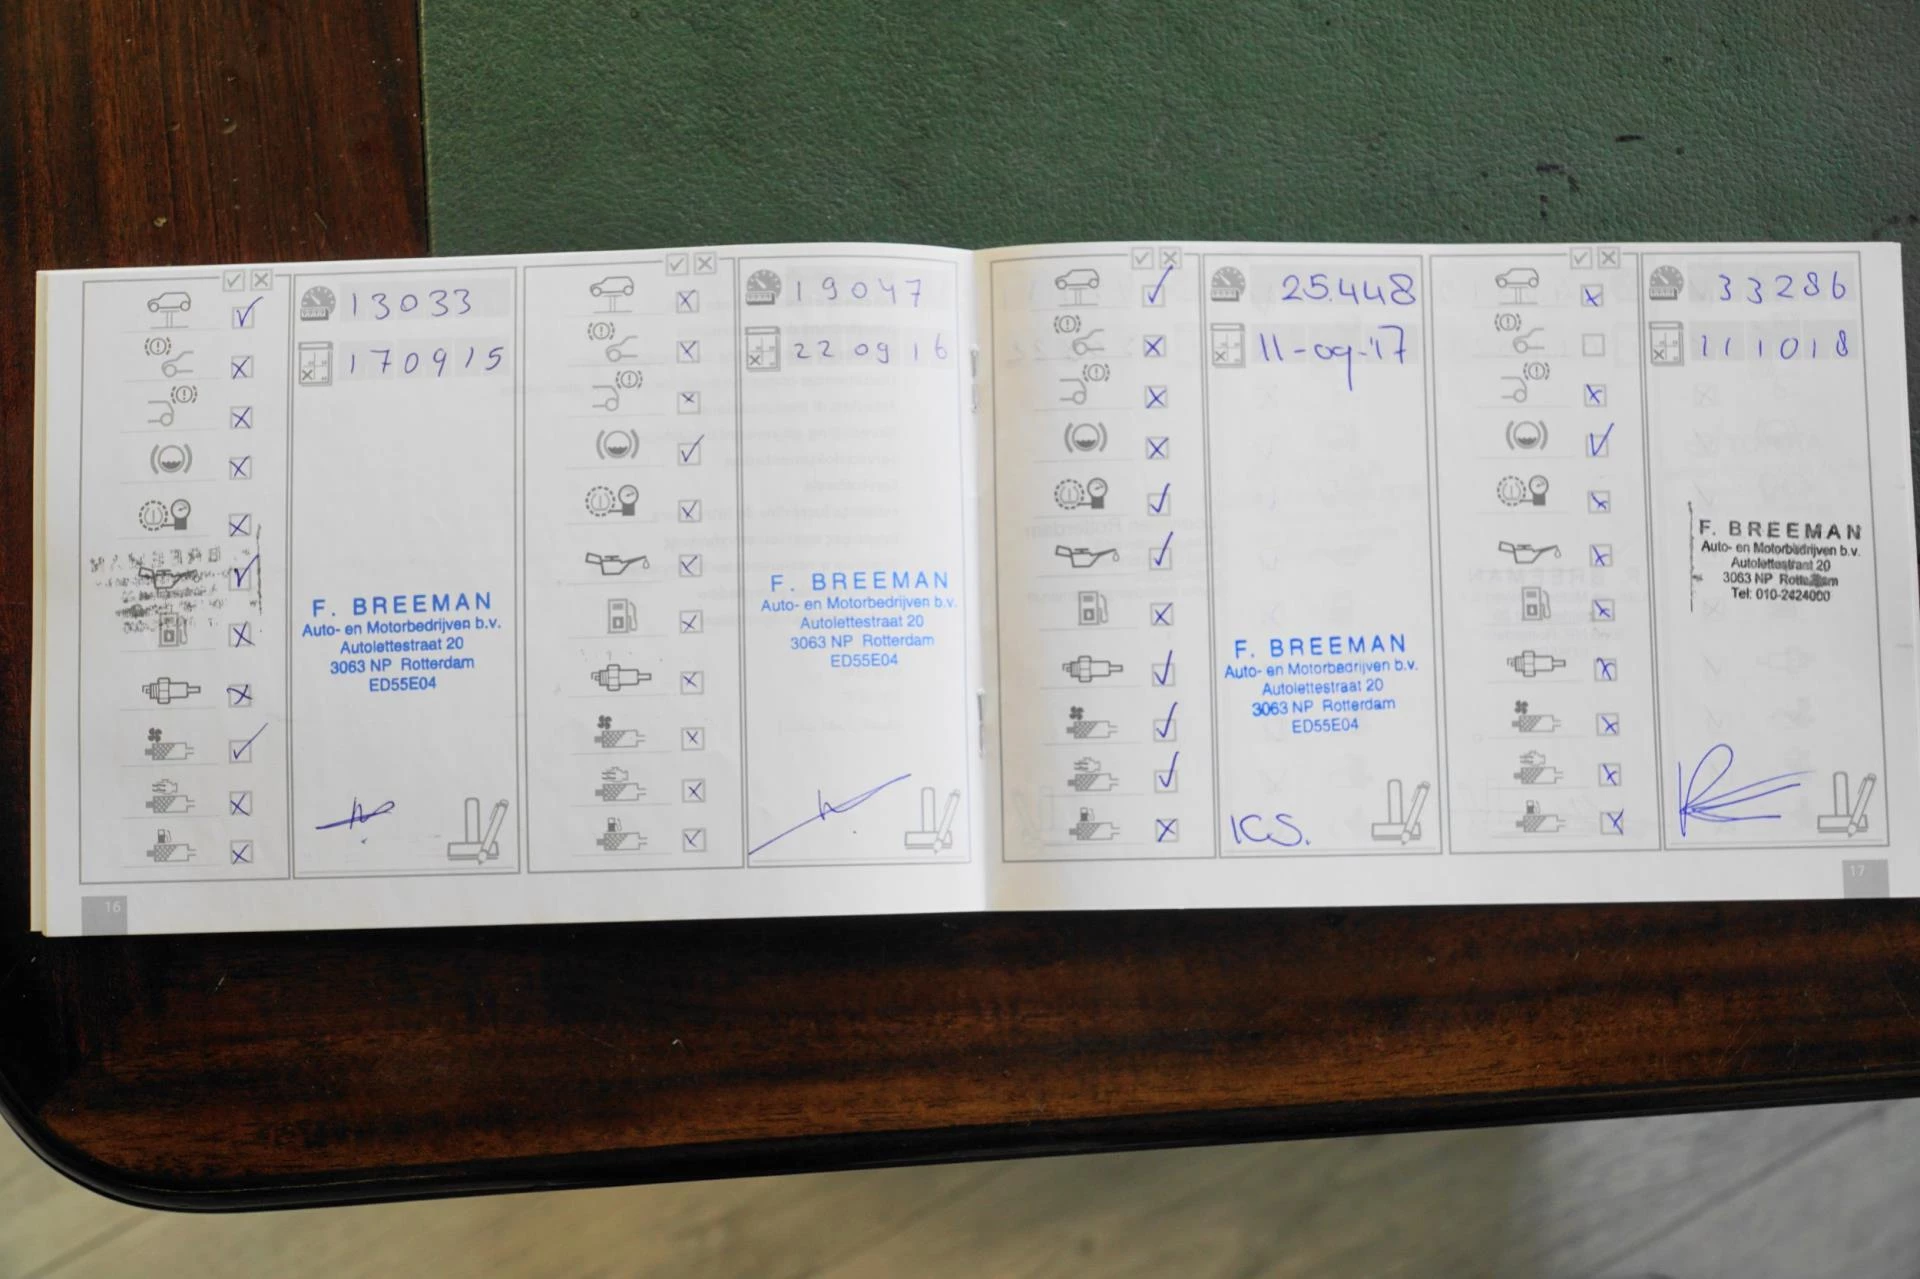 13033
170915
F. BREEMAN
Auto- en Motorbedrijven b.v.
Autolettestraat 20
3063 NP Rotterdam
ED55E04
19047
220916
F. BREEMAN
Auto- en Motorbedrijven b.v.
Autolettestraat 20
3063 NP Rotterdam
ED55E04
16
25.448
11-09-'17
F. BREEMAN
Auto- en Motorbedrijven b.v.
Autolettestraat 20
3063 NP Rotterdam
ED55E04
KS.
33286
111018
F. BREEMAN
Auto- en Motorbedrijven b.v.
Autolettestraat 20
3063 NP Rotterdam
Tel: 010-2424000
17